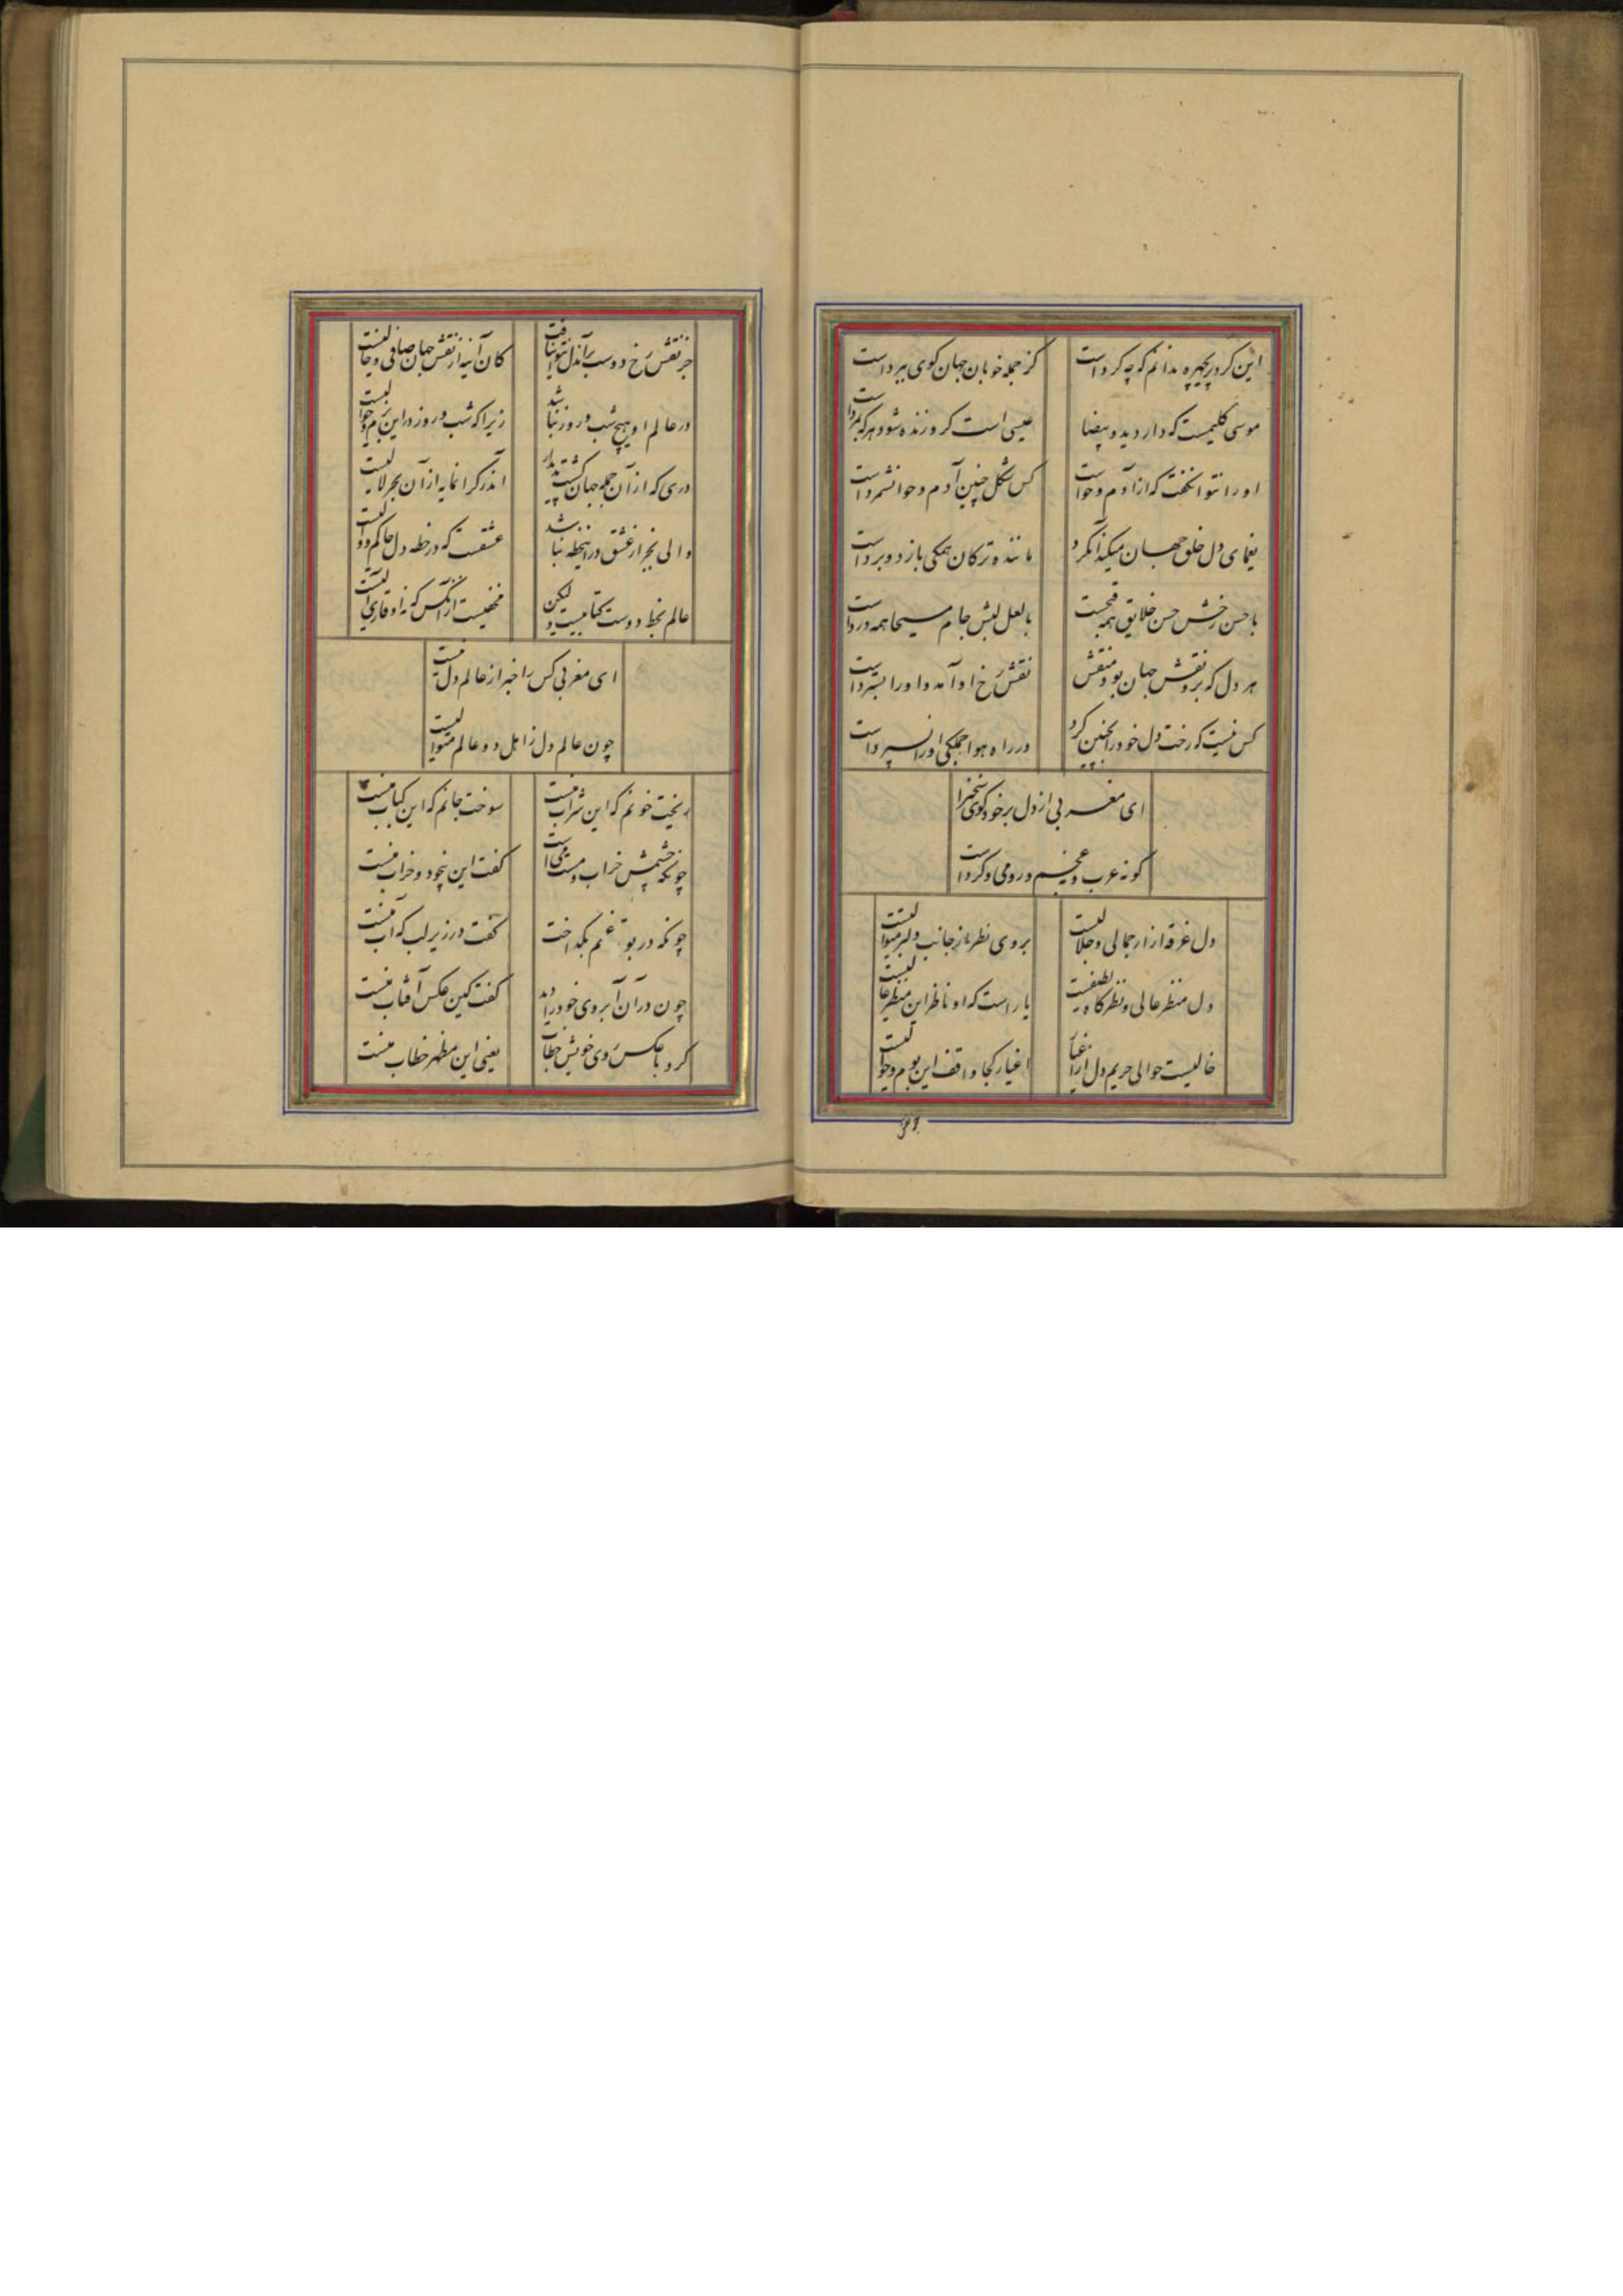 این کرد پریچهره ندانم که چه کرد است
کز جمله خوبان جهان گوی ببرد است
موسی کلیمست که دارد ید و بیضا
عیسی است کزو زنده شود هر که بمرد است
او را نتوان گفت که از آدم و حواست
کس شکل چنین آدم و حوا نشمرد است
یغمای دل خلق جهان میکند آن کرد
ماننده ترکان همگی بازد و برد است
با حسن رخش حسن خلایق همه قبحست
با لعل لبش جام مسیحا همه درد است
هر دل که برو نقش جهان بود منقش
نقش رخ او آمد و او را بسترد است
کس نیست که رخت دل خود را بچنین کرد
در راه هوا جملگی او را نسپرد است
ای مغربی از دل بر خود گوی سخن را
کو نه عرب و عجم و رومی و کرد است
دل غرقه انوار جمالی و جلالیست
بروی نظر از جانب دلبر متوالیست
دل منظر عالی و نظرگاه لطیفست
یار است که او ناظر این منظر عالیست
خالیست حوالی حریم دل از اغیار
اغیار کجا واقف این بوم و حوالیست
جز نقش رخ دوست بر آن دل نتوان یافت
کان آینه از نقش جهان صافی و خالیست
در عالم او هیچ شب و روز نباشد
زیرا که شب و روز در این بوم و حوالیست
دری که از آن جمله جهان گشت پدیدار
آن در گرانمایه از آن بحر لالیست
والی بجز از عشق در این خطه نباشد
عشقست که در خطه دل حاکم و والیست
عالم بخط دوست کتابیست ولیکن
مخفیست از آنکس که نه او قاری
ای مغربی کس را خبر از عالم دل نیست
چون عالم دل ز اهل دو عالم متوالیست
ریخت خونم که این شراب منست
سوخت جانم که این کباب منست
چونکه چشمش خراب و مست می است
گفت این بیخود و خراب منست
چونکه در بوته غم بگداخت
گفت در زیر لب که آب منست
چون در آن آب روی خود را دید
گفت کین عکس آفتاب منست
کرد با عکس روی خویش خطاب
یعنی این مظهر خطاب منست